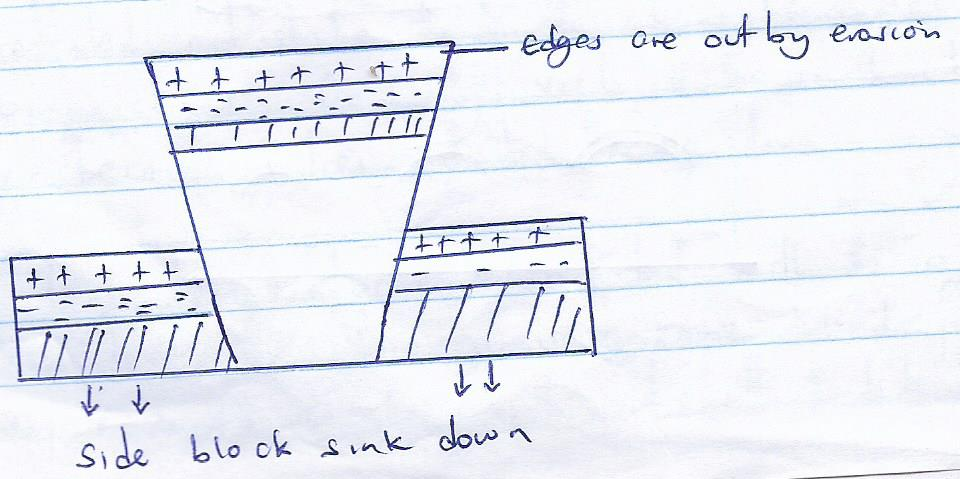 edges are out by erosion
side block sink down